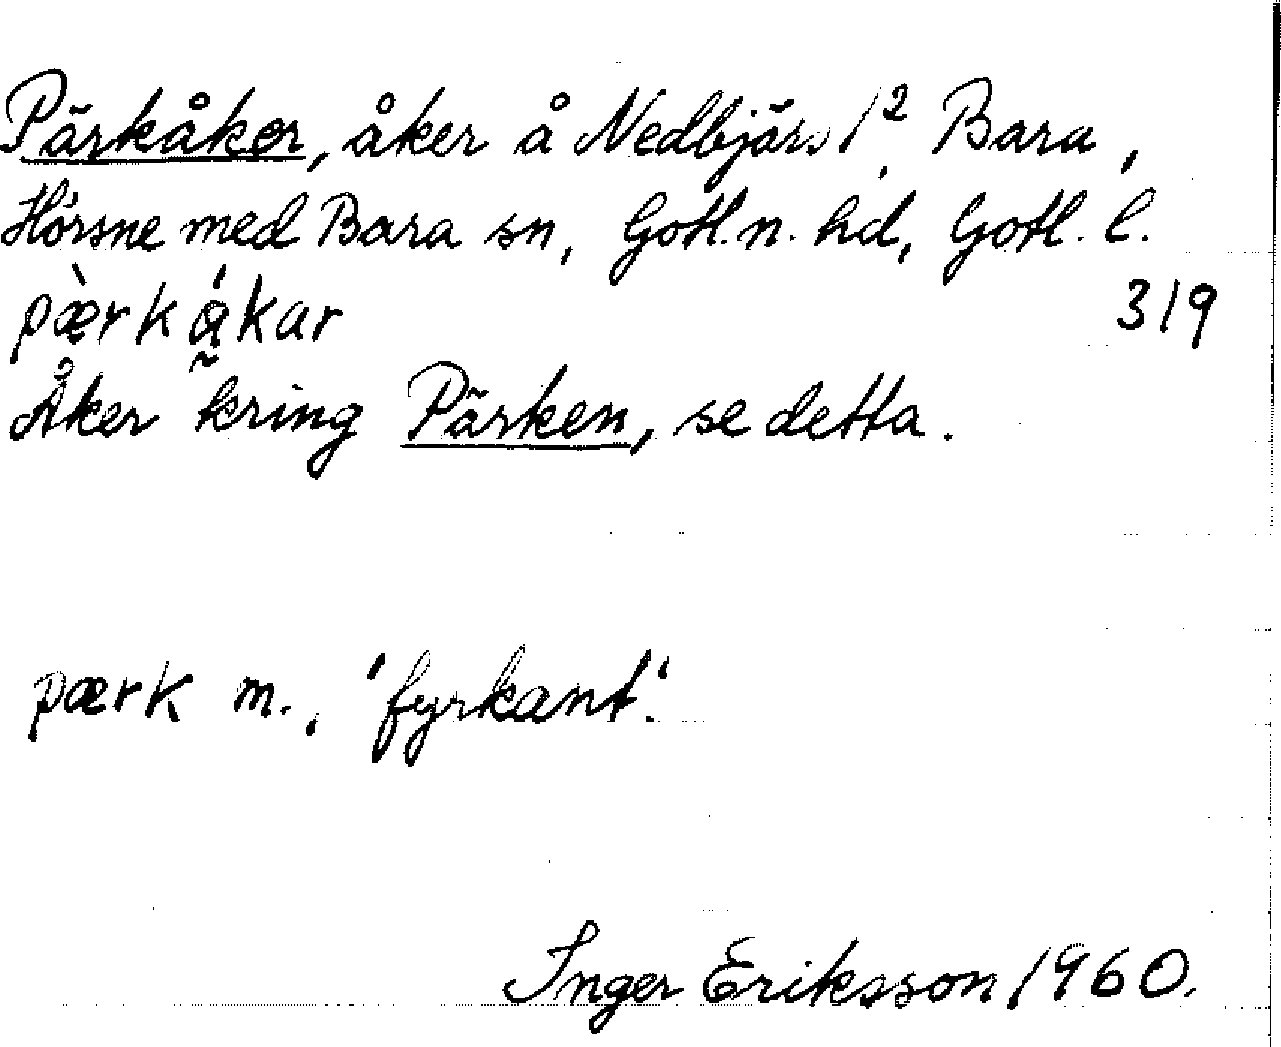 Pärkåker, åker å Nedbjärs 1², Bara,
Hörsne med Bara sn, Gotl. n. hd, Gotl. l.
pæ̀rkǻkar 319
Åker kring Pärken, se detta.
pærk m., 'fyrkant'.
Inger Eriksson 1960.